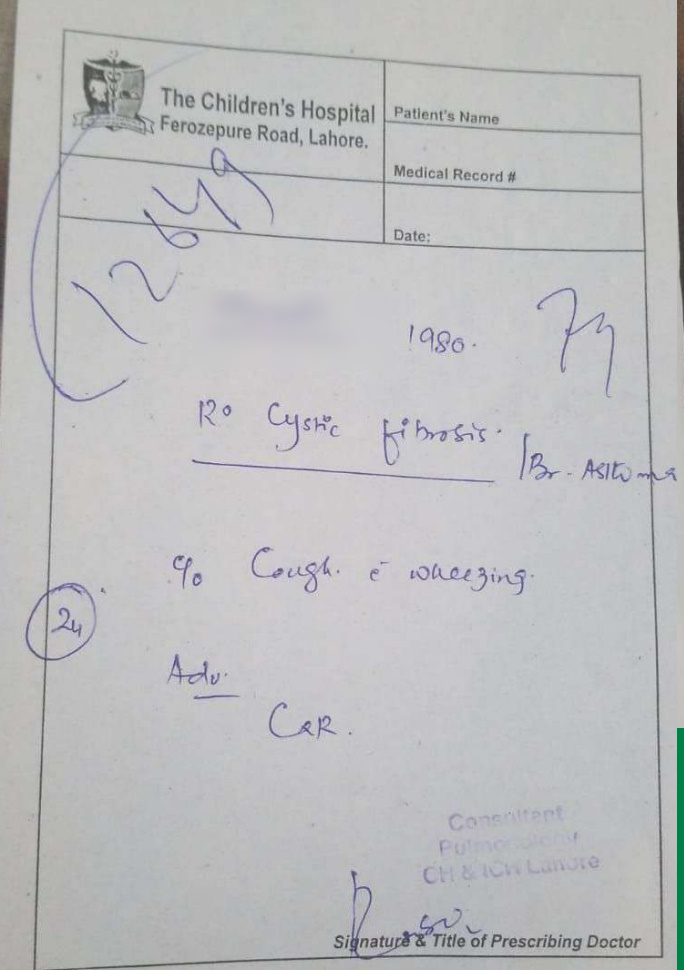 The Children's Hospital
Ferozepure Road, Lahore.
Patient's Name
Medical Record #
Date:
12649
1980.
7y
R° Cystic fibrosis.
/Br. Asthma
c/o Cough. c̄ wheezing.
24
Adv.
CxR.
Consultant
Pulmonology
CH & ICH Lahore
Signature & Title of Prescribing Doctor